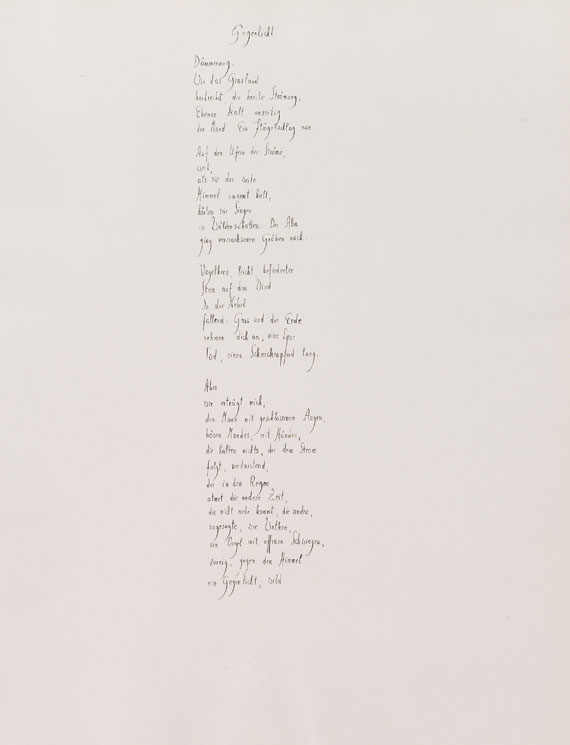 Gegenlicht
Dämmerung.
Wie das Grasland
hertreibt, die breite Strömung,
Ebenen. Kalt, unzeitig
der Mond. Ein Flügelschlag nun.
Auf den Ufern der Ströme,
weit,
als sie der weite
Himmel umarmt hielt,
hörten wir Singen
in Wälderschatten. Der Ahn
ging verwachsenen Gräben nach.
Vogelherz, leicht, befiederter
Stein auf dem Wind.
In die Nebel
fallend. Gras und die Erde
nehmen dich an, eine Spur
Tod, einen Schneckenpfad lang.
Aber
wer erträgt mich,
den Mann mit geschlossenen Augen,
bösen Mundes, mit Händen,
die halten nichts, der dem Strom
folgt, verdurstend,
der in den Regen
atmet die andere Zeit,
die nicht mehr kommt, die andre,
ungesagte, wie Wolken,
ein Vogel mit offenen Schwingen,
zornig, gegen den Himmel
ein Gegenlicht, wild.